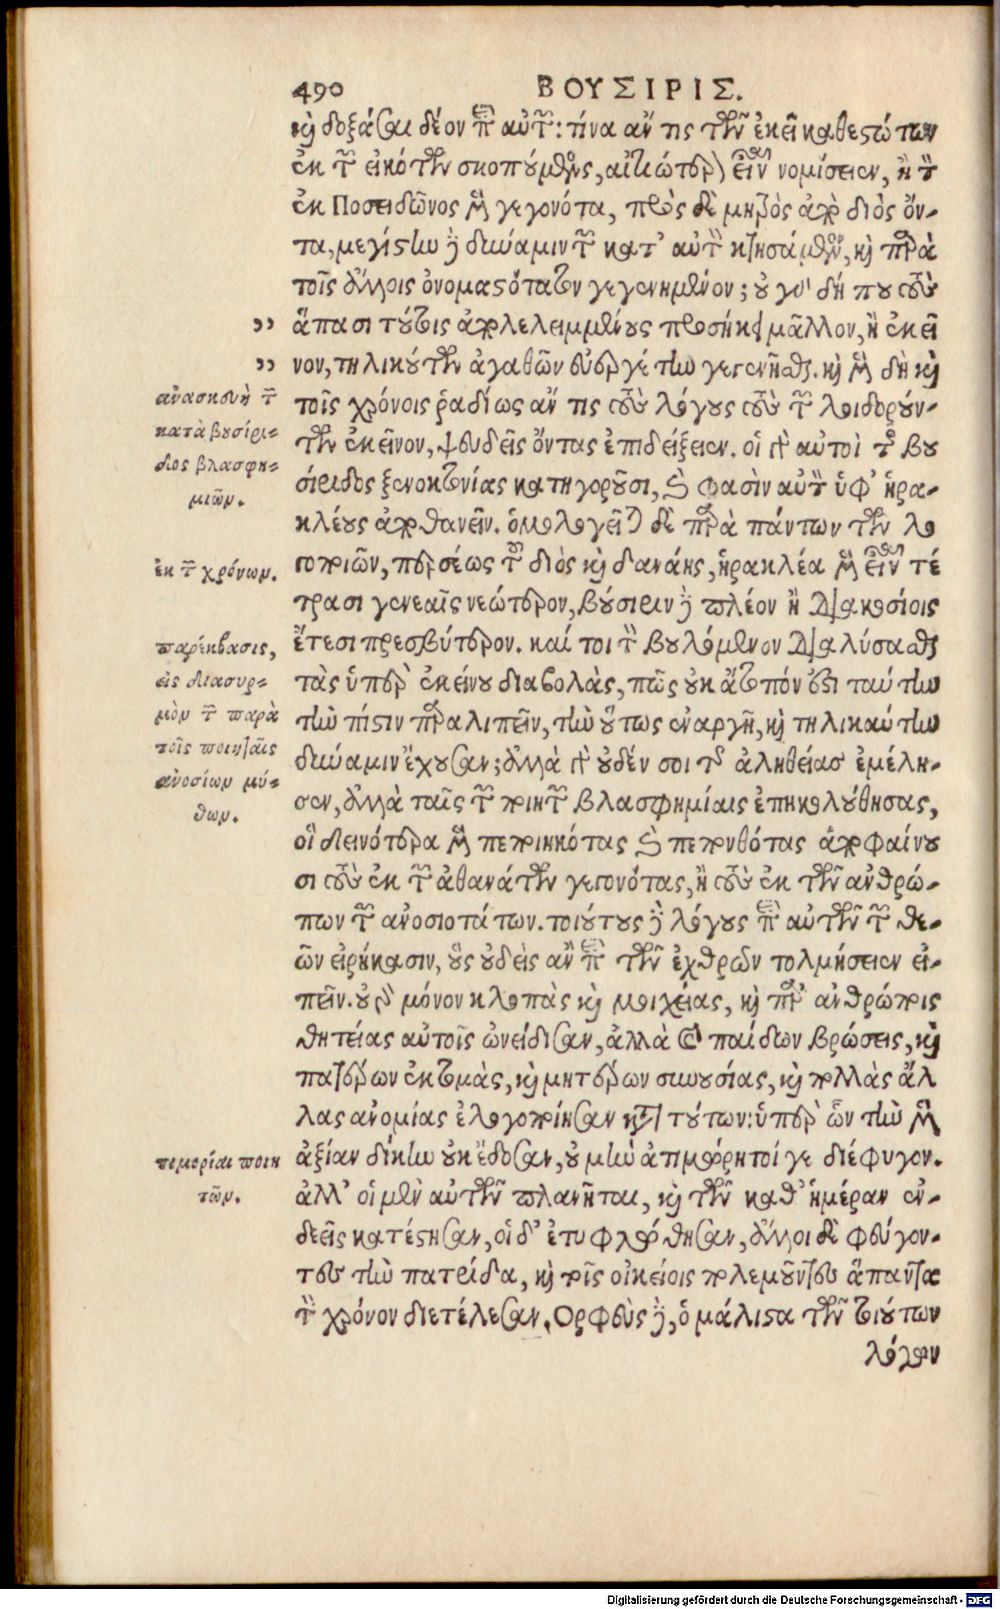 490 ΒΟΥΣΙΡΙΣ.
καὶ δοξάσαι δέον περὶ αὐτῶν: τίνα ἄν τις τῶν ἐκεῖ καθεστώτων
ἐκ τῶν εἰκότων σκοπούμενος, αἰτιώτερον εἶναι νομίσειεν, ἢ τὸν
ἐκ Ποσειδῶνος μὲν γεγονότα, πρὸς δὲ μητρὸς ἀπὸ διὸς ὄν-
τα, μεγίστην δὲ δύναμιν τῶν κατ' αὐτὸν κτησάμενον, καὶ παρὰ
τοῖς ἄλλοις ὀνομαστότατον γεγενημένον; οὐ γὰρ δή που τοὺς
,, ἅπασι τούτοις ἀπολελειμμένους προσήκει μᾶλλον, ἢ ἐκεῖ
,, νον, τηλικούτων ἀγαθῶν εὐεργέτην γεγενῆσθαι. καὶ μὲν δὴ καὶ
τοῖς χρόνοις ῥαδίως ἄν τις τοὺς λόγους τοὺς τῶν λοιδορούν-
των ἐκεῖνον, ψευδεῖς ὄντας ἐπιδείξειεν. οἱ γὰρ αὐτοὶ τῆς βου
σίριδος ξενοκτονίας κατηγοροῦσι, καὶ φασὶν αὐτὸν ὑφ' ἡρα-
κλέους ἀποθανεῖν. ὁμολογεῖται δὲ παρὰ πάντων τῶν λο
γοποιῶν, περσέως τοῦ διὸς καὶ δανάης, ἡρακλέα μὲν εἶναι τέ
τρασι γενεαῖς νεώτερον, βούσιριν δὲ πλέον ἢ διακοσίοις
ἔτεσι πρεσβύτερον. καί τοι τὸν βουλόμενον διαλύσασθαι
τὰς ὑπὲρ ἐκείνου διαβολὰς, πῶς οὐκ ἄτοπόν ἐστι ταύτην
τὴν πίστιν παραλιπεῖν, τὴν οὕτως ἐναργῆ, καὶ τηλικαύτην
δύναμιν ἔχουσαν; ἀλλὰ γὰρ οὐδέν σοι τῆς ἀληθείας ἐμέλη-
σεν, ἀλλὰ ταῖς τῶν ποιητῶν βλασφημίαις ἐπηκολούθησας,
οἳ δεινότερα μὲν πεποιηκότας καὶ πεπονθότας ἀποφαίνου
σι τοὺς ἐκ τῶν ἀθανάτων γεγονότας, ἢ τοὺς ἐκ τῶν ἀνθρώ-
πων τῶν ἀνοσιοτάτων. τοιούτους δὲ λόγους περὶ αὐτῶν τῶν θε-
ῶν εἰρήκασιν, οὓς οὐδεὶς ἂν περὶ τῶν ἐχθρῶν τολμήσειεν εἰ-
πεῖν. οὐ γὰρ μόνον κλοπὰς καὶ μοιχείας, καὶ παρ' ἀνθρώποις
θητείας αὐτοῖς ὠνείδισαν, ἀλλὰ καὶ παίδων βρώσεις, καὶ
πατέρων ἐκτομὰς, καὶ μητέρων συνουσίας, καὶ πολλὰς ἄλ
λας ἀνομίας ἐλογοποίησαν κατὰ τούτων: ὑπὲρ ὧν τὴν μὲν
ἀξίαν δίκην οὐκ ἔδοσαν, οὐ μὴν ἀτιμώρητοί γε διέφυγον.
ἀλλ' οἱ μὲν αὐτῶν πλανῆται, καὶ τῶν καθ' ἡμέραν ἐν-
δεεῖς κατέστησαν, οἱ δ' ἐτυφλώθησαν, ἄλλοι δὲ φεύγον-
τες τὴν πατρίδα, καὶ τοῖς οἰκείοις πολεμοῦντες ἅπαντα
τὸν χρόνον διετέλεσαν. Ορφεὺς δὲ, ὁ μάλιστα τῶν τοιούτων
λόγων
ἀνασκευὴ τῶν
κατὰ βουσίρι-
δος βλασφη-
μιῶν.
ἐκ τῶν χρόνων.
παρέκβασις,
εἰς διασυρ-
μὸν τῶν παρὰ
τοῖς ποιηταῖς
ἀνοσίων μύ-
θων.
τιμωρίαι ποιη
τῶν.
Digitalisierung gefördert durch die Deutsche Forschungsgemeinschaft - DFG